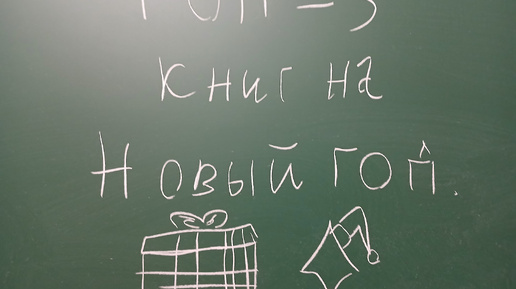 книг на
Новый год.